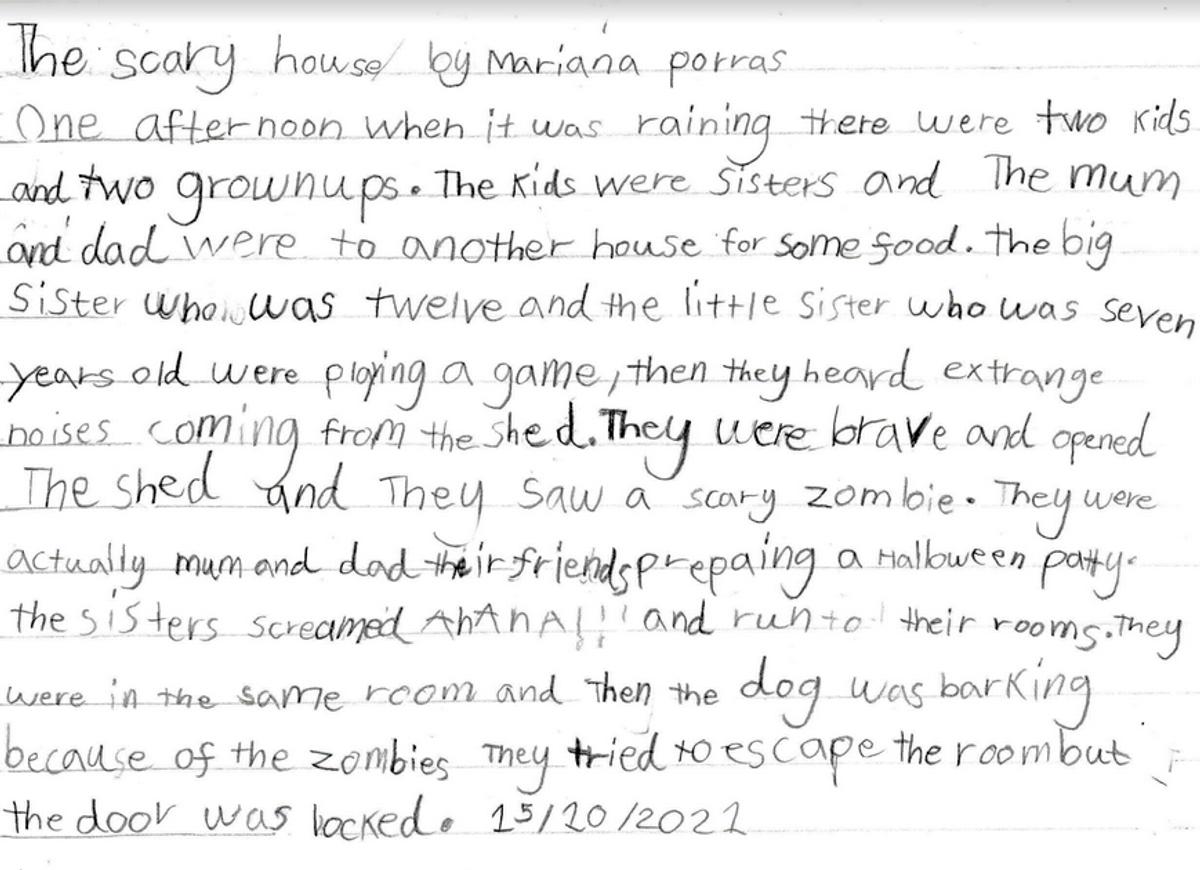 The scary house by Mariana porras
One afternoon when it was raining there were two kids
and two grownups. The kids were sisters and The mum
and dad were to another house for some food. The big
Sister who was twelve and the little sister who was seven
years old were playing a game, then they heard extrange
noises coming from the shed. They were brave and opened
The shed and They saw a scary zombie. They were
actually mum and dad their friends prepaing a Halloween patty.
the sisters screamed AhAhA!!! and run to their rooms. They
were in the same room and Then the dog was barking
because of the zombies They tried to escape the room but
the door was locked. 15/10/2021